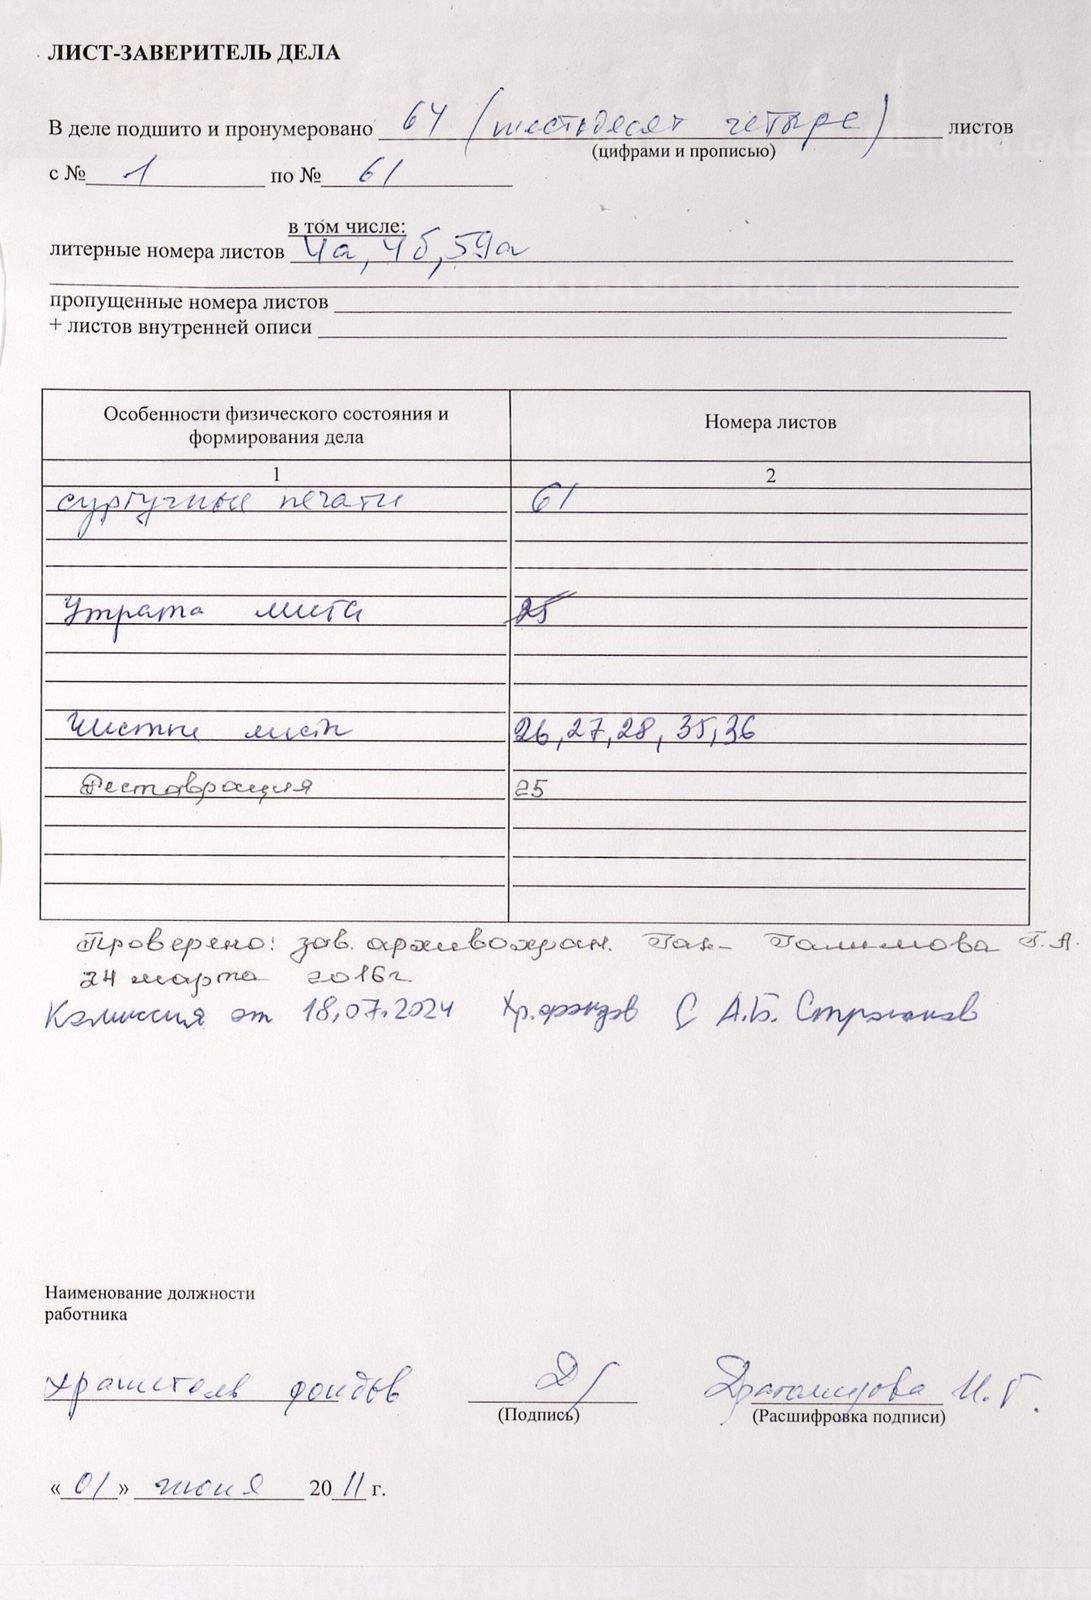 ЛИСТ-ЗАВЕРИТЕЛЬ ДЕЛА
В деле подшито и пронумеровано 64 (шестьдесят четыре) листов
(цифрами и прописью)
с № 1 по № 61
в том числе:
литерные номера листов 4а, 4б, 59а
пропущенные номера листов
+ листов внутренней описи
Особенности физического состояния и формирования дела
Номера листов
1 2
сургучные печати 61
Утрата листа 25
Чистые листы 26, 27, 28, 35, 36
Реставрация 25
Проверено: зав. архивохран. Галимова Г.А.
24 марта 2016г.
Комиссия от 18.07.2024 Хр. фондов А.Б. Стрюков
Наименование должности
работника
хранитель фондов
(Подпись) (Расшифровка подписи)
И.Г.
«01» июня 2011 г.
METRIKI.GASO-URAL.RU